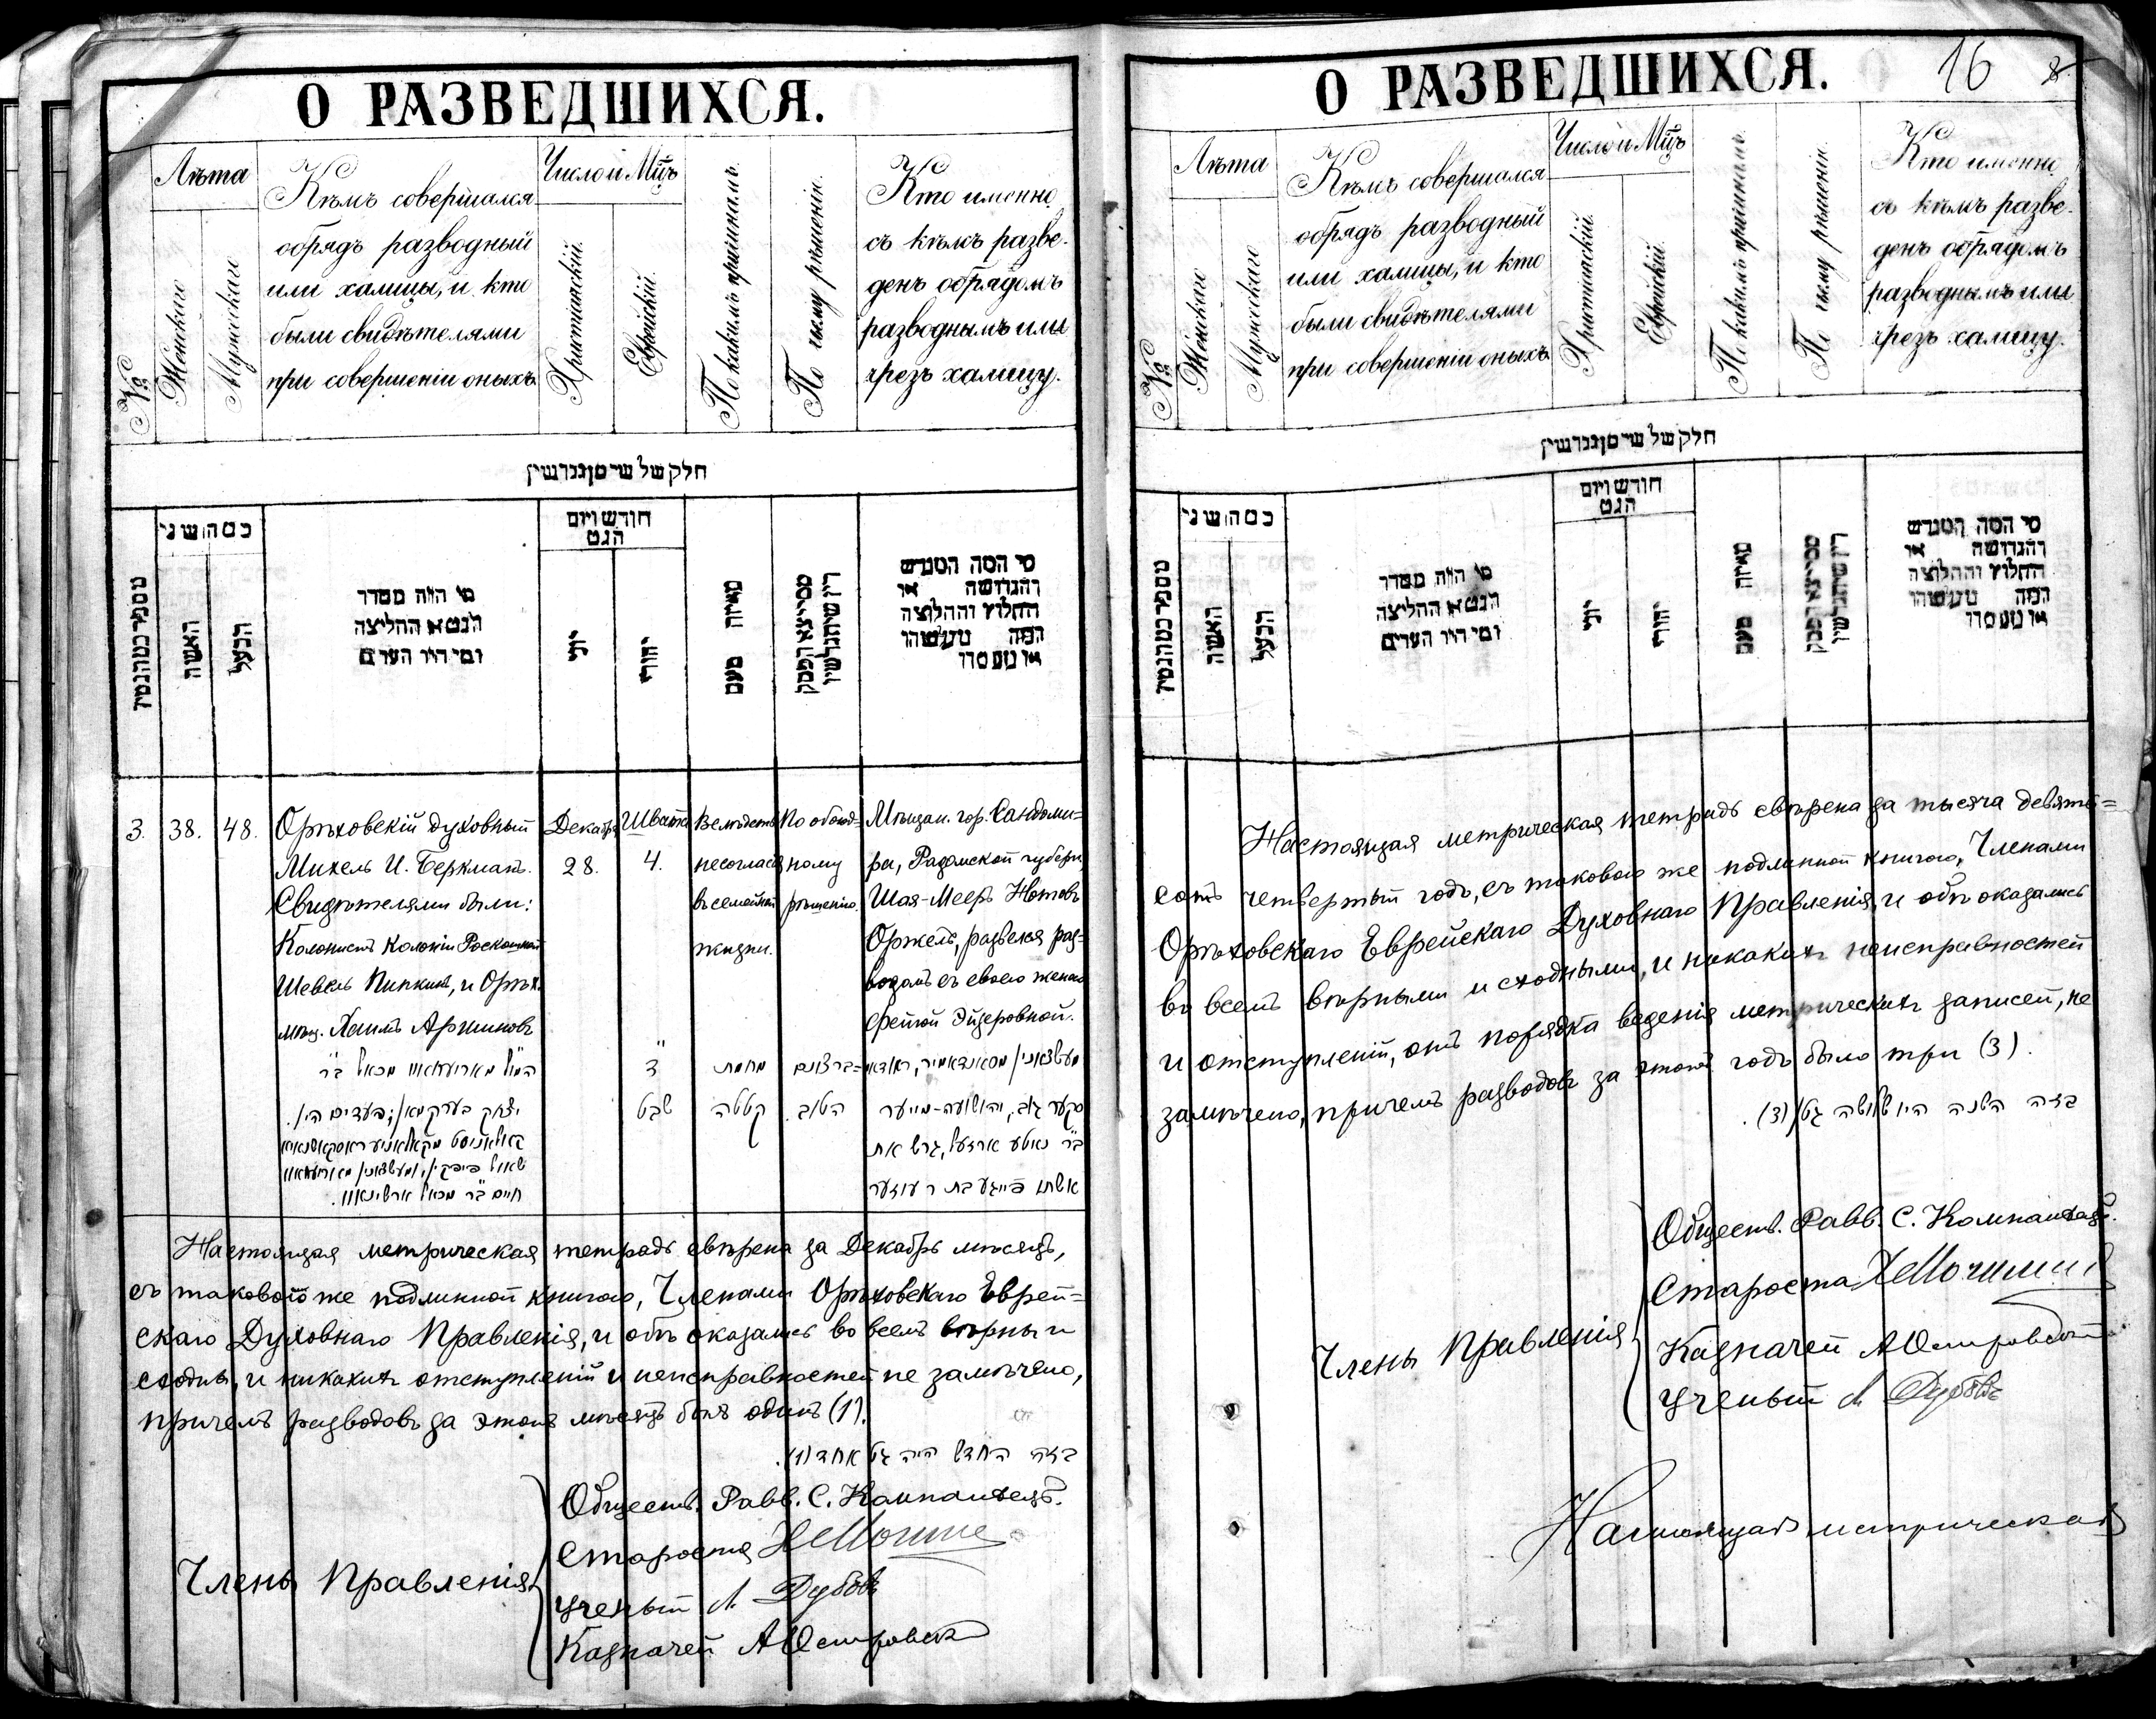 О РАЗВЕДШИХСЯ.
№
Лѣта
Женскаго
Мужескаго
Кѣмъ совершался
обрядъ разводный
или халицы, и кто
были свидѣтелями
при совершеніи оныхъ
Число и Мцъ
Христіанскій.
Еврейскій.
По какимъ причинамъ.
По чьему рѣшенію.
Кто именно
съ кѣмъ разве-
денъ обрядомъ
разводнымъ или
чрезъ халицу.
חלק של
כמה שני
האשה
הבעל
מי היה מסדר
הגט או החליצה
ומי היו העדים
חודש ויום
הגט
יוני
יהודי
3. 38. 48.
Орѣховскій духовный
Михель И. Беркманъ.
Свидѣтелями были:
Колонистъ Колоніи Роскошной
Шевель Пипкинъ, и Орѣх.
мѣщ. Хаимъ Аршиновъ
Декабря
28.
Швата
4.
Вслѣдствіе
несогласія
въ семейной
жизни.
По обоюд-
ному
рѣшенію.
Мѣщан. гор. Сандоми-
ра, Радомской губерн.
Шая-Мееръ Нотовъ
Оржель, развелся раз-
водомъ съ своею женою
Фейгой Эйзеровной.
ד
שבט
מחמת
קטטה
ברצונם
הטוב.
יצחק בערקמאן; העדים היו.
חיים ב״ר מכאל ארשינאוו.
ב״ר נאטע ארזעל, גרש את
אשתו פייגע בת ר׳ עוזער
Настоящая метрическая тетрадь свѣрена за Декабрь мѣсяцъ,
съ таковою же подлинной книгою, Членами Орѣховскаго Еврей=
скаго Духовнаго Правленія, и обѣ оказались во всемъ вѣрны и
сходны, и никакихъ отступленій и неисправностей не замѣчено,
причемъ разводовъ за этотъ мѣсяцъ былъ одинъ (1).
בזה החדש היה גט אחד (1).
Члены Правленія
Обществ. Равв. С. Компанеецъ.
Староста
Ученый Л. Дубовъ
Казначей А Островск
О РАЗВЕДШИХСЯ.
16
8
№
Лѣта
Женскаго
Мужескаго
Кѣмъ совершался
обрядъ разводный
или халицы, и кто
были свидѣтелями
при совершеніи оныхъ
Число и Мцъ
Христіанскій.
Еврейскій.
По какимъ причинамъ.
По чьему рѣшенію.
Кто именно
съ кѣмъ разве-
денъ обрядомъ
разводнымъ или
чрезъ халицу.
חלק של
כמה שני
האשה
הבעל
מי היה מסדר
הגט או החליצה
ומי היו העדים
חודש ויום
הגט
יוני
יהודי
Настоящая метрическая тетрадь свѣрена за тысяча девять=
сотъ четвертый годъ, съ таковою же подлинной книгою, Членами
Орѣховскаго Еврейскаго Духовнаго Правленія, и обѣ оказались
во всемъ вѣрными и сходными, и никакихъ неисправностей
и отступленій, отъ порядка веденія метрическихъ записей, не
замѣчено, причемъ разводовъ за этотъ годъ было три (3).
בזה השנה היו שלושה גטין (3).
Члены Правленія
Обществ. Равв. С. Компанеецъ.
Староста
Казначей А Островскій
Ученый Л Дубовъ
Настоящая метрическая